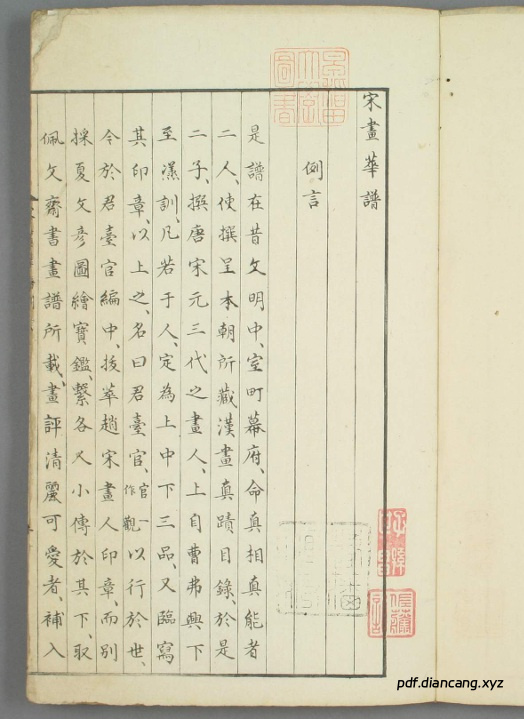 宋畫華譜
例言
是譜在昔文明中、室町幕府、命真相真能者
二人、使撰呈本朝所藏漢畫真蹟目錄、於是
二子、撰唐宋元三代之畫人、上自曹弗興下
至濮訓、凡若于人、定為上中下三品、又臨寫
其印章、以上之、名曰君臺官、官一作觀以行於世、
今於君臺官編中、拔萃趙宋畫人印章、而別
採夏文彥圖繪寶鑑、繫各又小傳於其下、取
佩文齋書畫譜所載、畫評清麗可愛者、補入
pdf.diancang.xyz